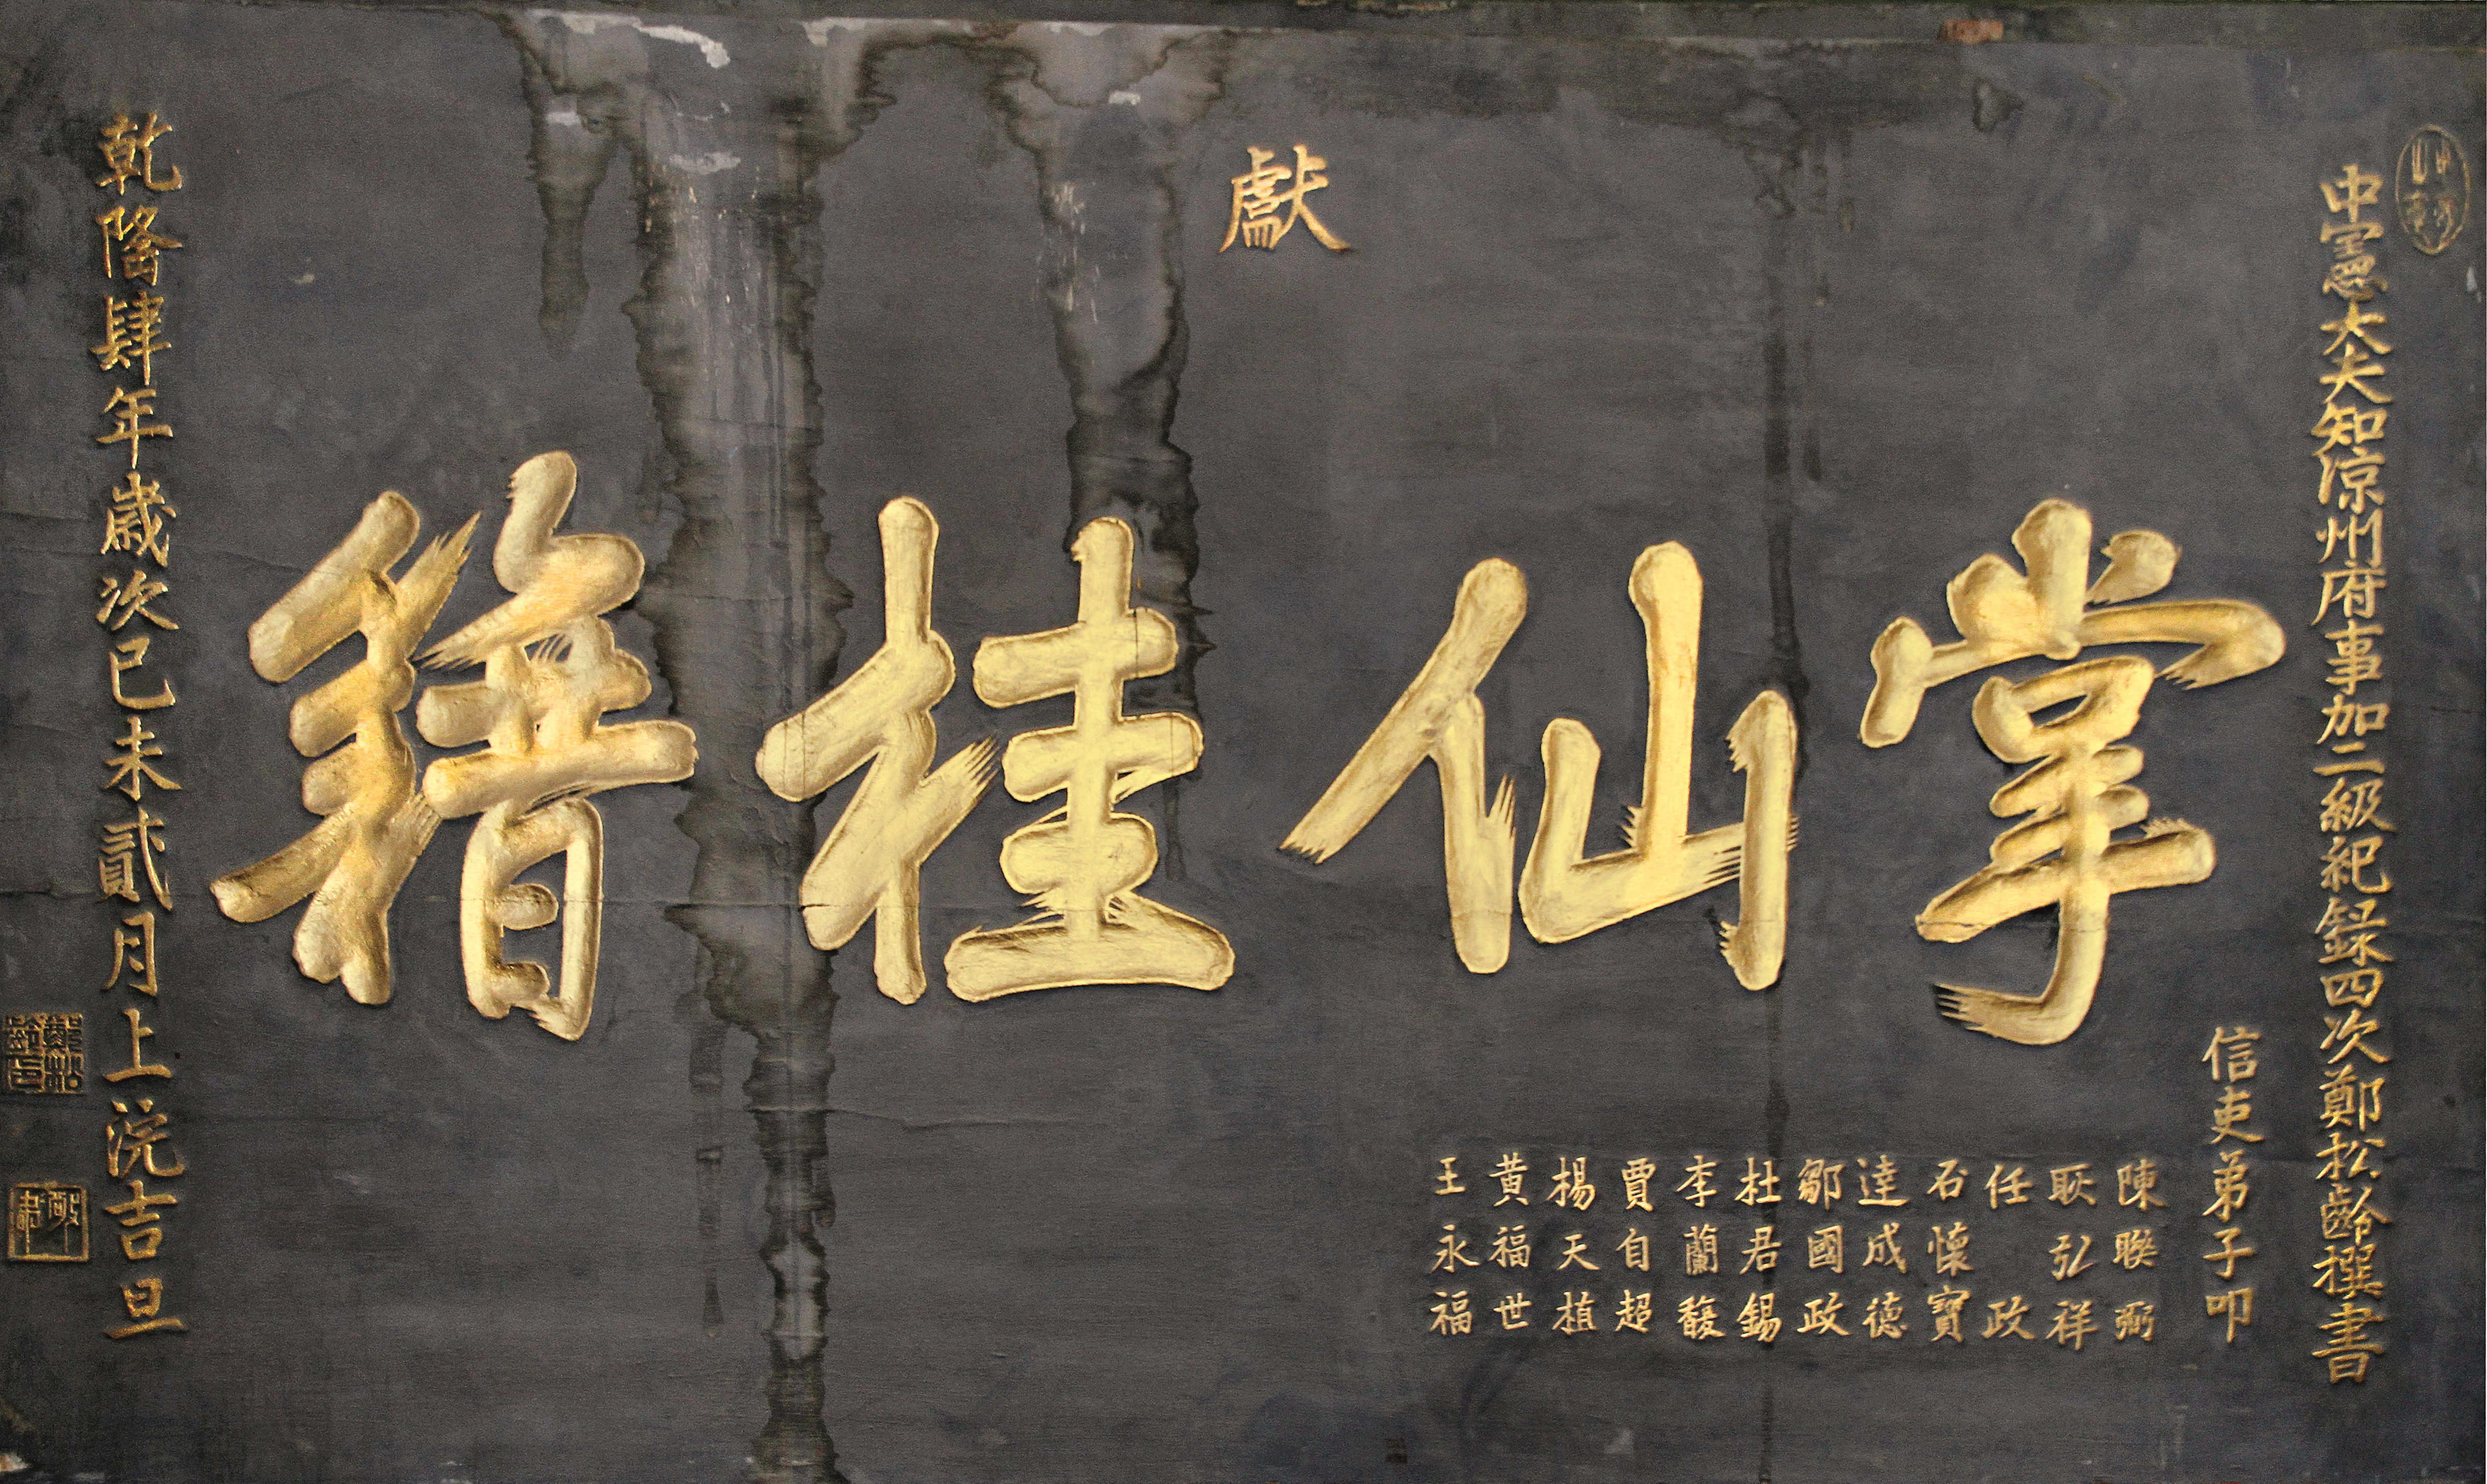 中憲大夫知涼州府事加二級紀録四次鄭松齡撰書
掌仙桂籍
獻
信吏弟子叩
陳聯弼
耿弘祥
任政
石懷寶
達成德
鄒國政
杜君錫
李蘭馥
賈自超
楊天植
黃福世
王永福
乾隆肆年歲次已未貳月上浣吉旦
鄭松齡印